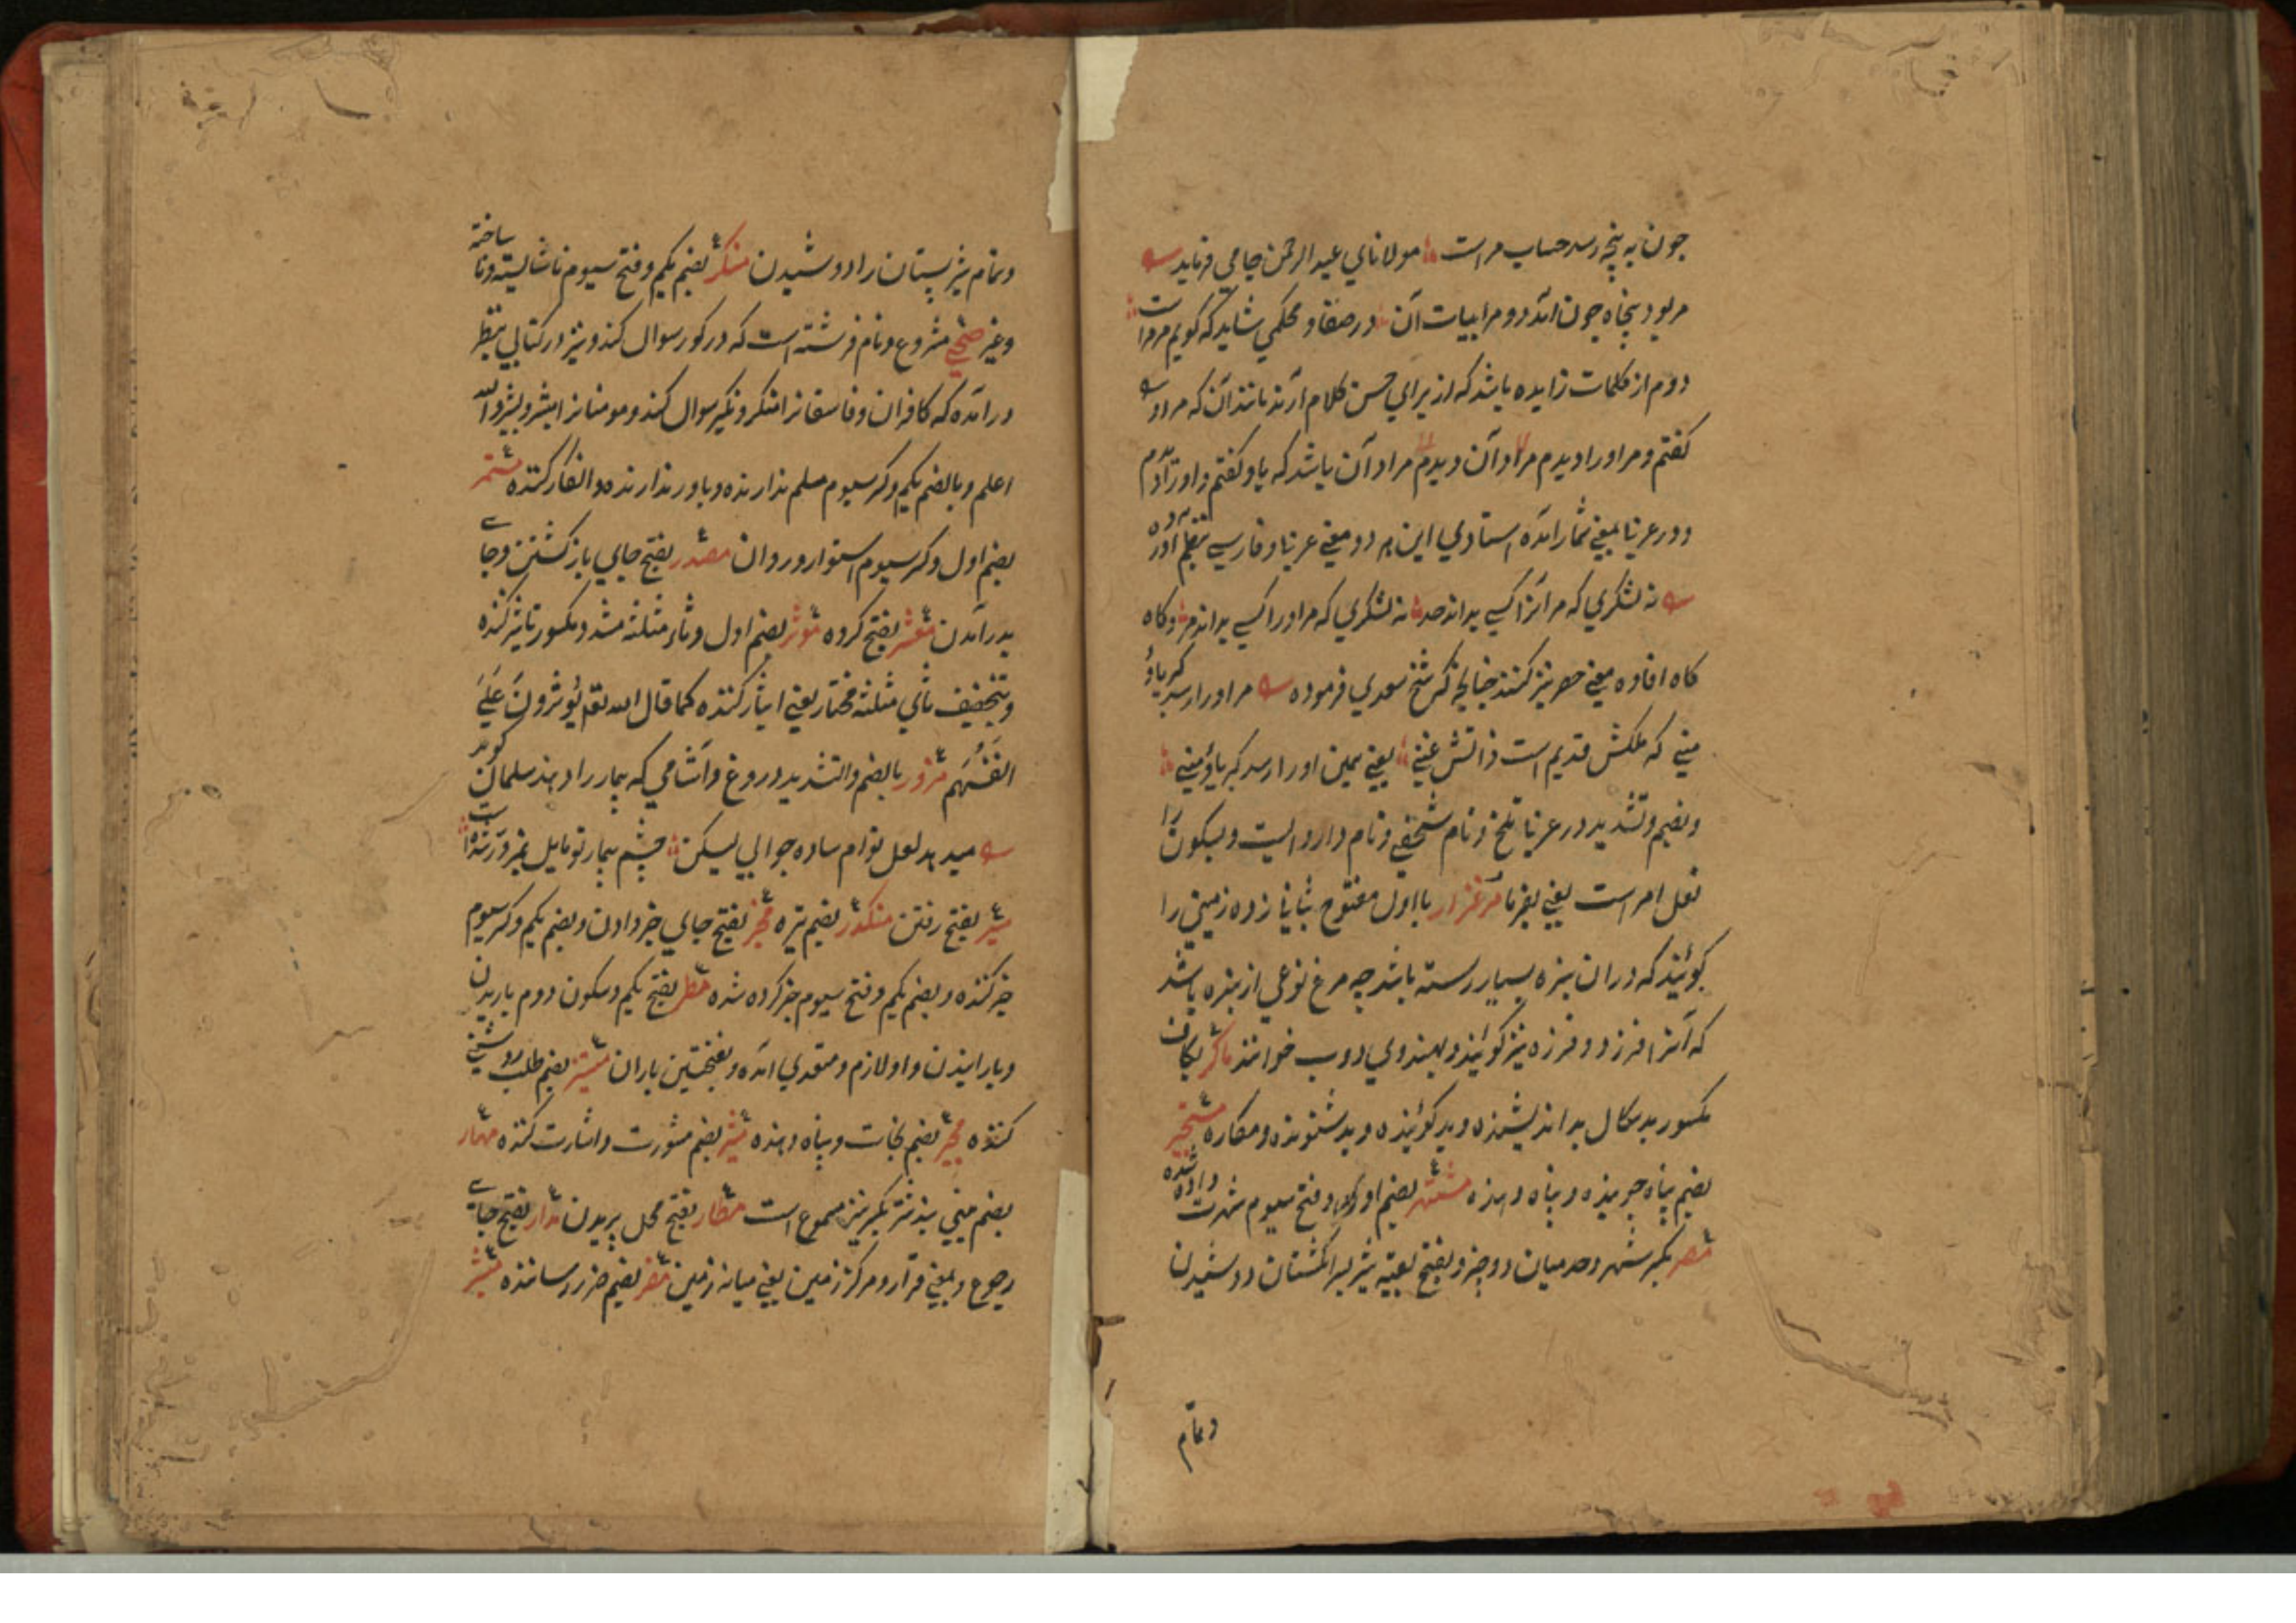 چون به پنجه رسد حساب مر است مولانای عبد الرحمن جامی فرماید
مر بود پنجاه چون آمد دو مر ابیات آن در صفا و محکمی شاید که گویم مر مراست
دوم از کلمات زایده باشد که از برای حسن کلام آرند مانند آن که مر او
گفتم و مر او را دیدم مراد آن دیدم مراد آن باشد که باو گفتم و او را دیدم
و در عربی بمعنی شمار آمده استادی این هر دو معنی عربی و فارسی بنظم آورده
نه لشکری که مر انرا کسی بداند حد نه لشکری که مر او را کسی بداند مر و گاه
گاه افاده معنی حصر نیز کنند چنانچه شیخ سعدی فرموده مر او را رسد کبریاؤ
منی که ملکش قدیم است ذاتش غنی یعنی همین او را رسد کبریاؤ منی
و بضم و تشدید در عربی تلخ و نام شخصی و نام داروایست و بسکون را
فعل امر است یعنی بفرما مرغزار با اول مفتوح بثانی زده زمینی را
گویند که در ان سبزه بسیار رسته باشد چه مرغ نوعی از سبزه باشد
که آنرا فرزد و فرزه نیز گویند و بهندوی دوب خوانند ماکر بکاف
مکسور بد سکال بد اندیشنده و بد گوینده و بد شنونده و مکاره مستجیر
بضم پناه جوینده و پناه دهنده مشتهر بضم اول و فتح سیوم شهرت داده شده
مصر بکسر شهر و حد میان دو چیز و بفتح بقیه شیر بسر انگشتان دوشیدن
و تمام
و تمام شیر پستان را دوشیدن منکر بضم یکم و فتح سیوم ناشایسته و نا ساخته
و غیر صحیح مشروع و نام فرشته است که در گور سوال کند و نیز در کتابی بنظر
در آمده که کافران و فاسقانرا منکر و نکیر سوال کنند و مومنانرا مبشر و بشیر و الله
اعلم و بالضم یکم و کسر سیوم مسلم ندارنده و باور ندارنده و انکار کننده مستمر
بضم اول و کسر سیوم استوار و روان مصدر بفتح جای باز گشتن و جای
بدر آمدن معشر بفتح گروه موثر بضم اول و ثاء مثلثه مشدد و مکسور تاثیر کننده
و بتخفیف ثای مثلثه مختار یعنی ایثار کننده کما قال الله تع یُوثرونَ عَلیَ
انفُسَهُم مزور بالضم و التشدید دروغ و آشامی که بیمار را دهند سلمان گوید
میدهد لعل توام ساده جوابی لیکن چشم بیمار تو مایل بمزور شده است
سیر بفتح رفتن منکدر بضم تیره مخبر بفتح جای خبر دادن و بضم یکم و کسر سیوم
خبر کننده و بضم یکم و فتح سیوم خبر کرده شده مطر بفتح یکم و سکون دوم باریدن
و بارانیدن و او لازم و متعدی آمده و بفتحتین باران مستنیر بضم طلب روشنی
کننده مجیر بضم نجات و پناه دهنده مشیر بضم مشورت و اشارت کننده مهمار
بضم بکسر نیز مسموع است مطار بفتح محل پریدن مدار بفتح جای
رجوع و بمعنی قرار و مرکز زمین یعنی میانه زمین مضر بضم ضرر رساننده مبشر